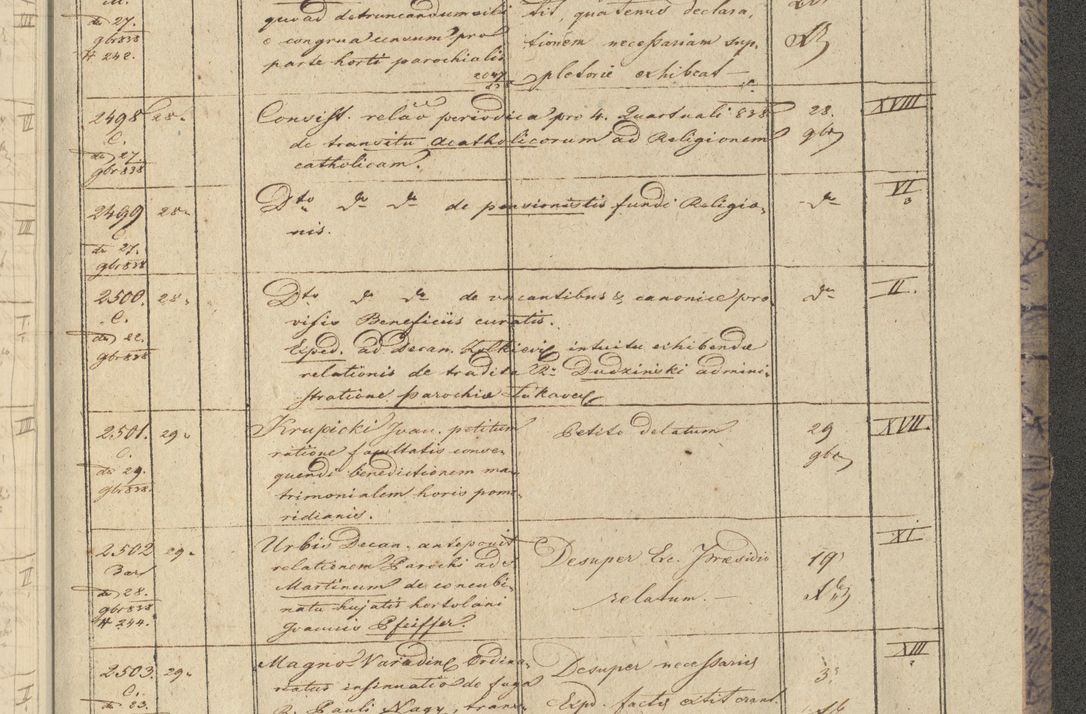 de 27.
gbr 838
# 242.
quoad detruncandum sibi
e congrua censum pro
parte horti parochialis
2047
838
tit, quatenus declara,
tionem necessariam sup,
pletorie exhibeat —
2498 28.
C.
de 27.
gbr 838
Consist. relao periodica pro 4. Quartuali 838
de transitu acatholicorum ad Religionem
catholicam.
28.
gbr
XVIII
2499 28.
C.
de 27.
gbr 838
Dto do do de pensionistis fundi Religio,
nis.
do
VI
3
2500. 28.
C.
de 22.
gbr 838
Dto do do de vacantibus & canonice pro,
visis Beneficiis curatis.
Exped. ad Decan. intuitu exhibendæ
relationis de tradita Dudzinski admini,
stratione parochiæ
do
II.
2501. 29.
C.
de 29.
gbr 838.
Krupicki Joan. petitum
ratione facultatis conse,
quendi benedictionem ma,
trimonialem horis pome,
ridianis.
Petito delatum
29
gbr
XVII.
2502 29.
Bar
de 28.
gbr 838
# 244.
Urbis Decan. anteponit
relationem Parochi ad S
Martinum de concubi,
natu hujatis hortolani
Joannis Pfeiffer.
Desuper Exc. Præsidio
relatum. —
19
XI
2503. 29.
C.
de 23.
Magno Varadin Ordina,
riatus insinuatio de fuga
R. Pauli Nagy, trans,
Desuper necessariis
Exp. factis extiterant
3
XIII